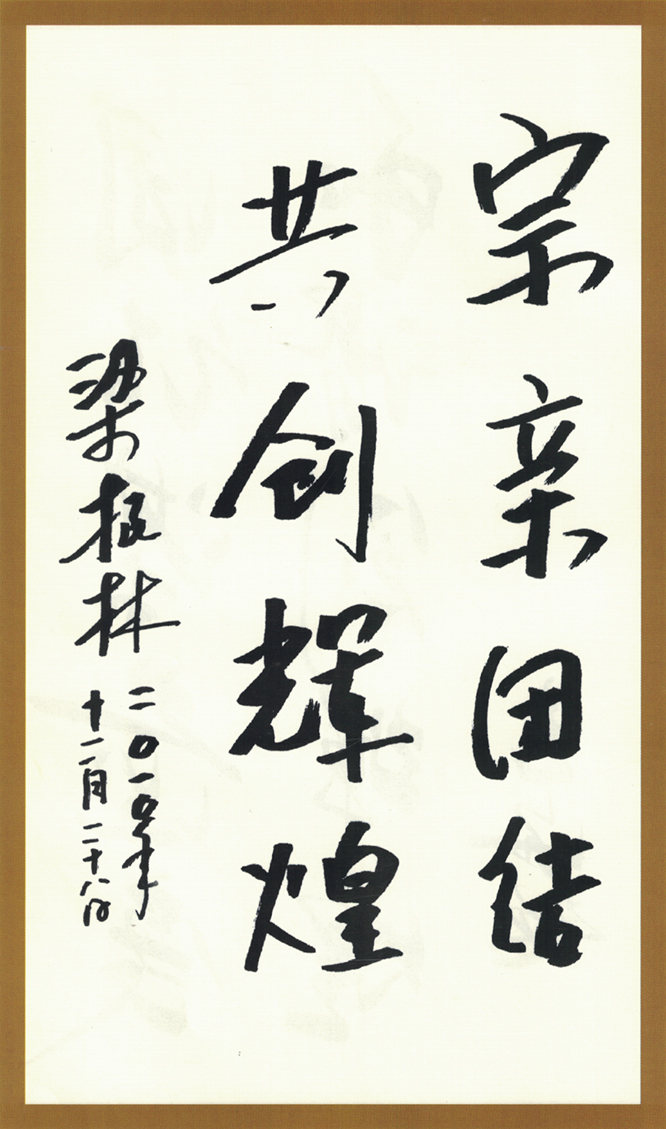 宗亲团结
共创辉煌
梁林
二〇一年
月二十八日